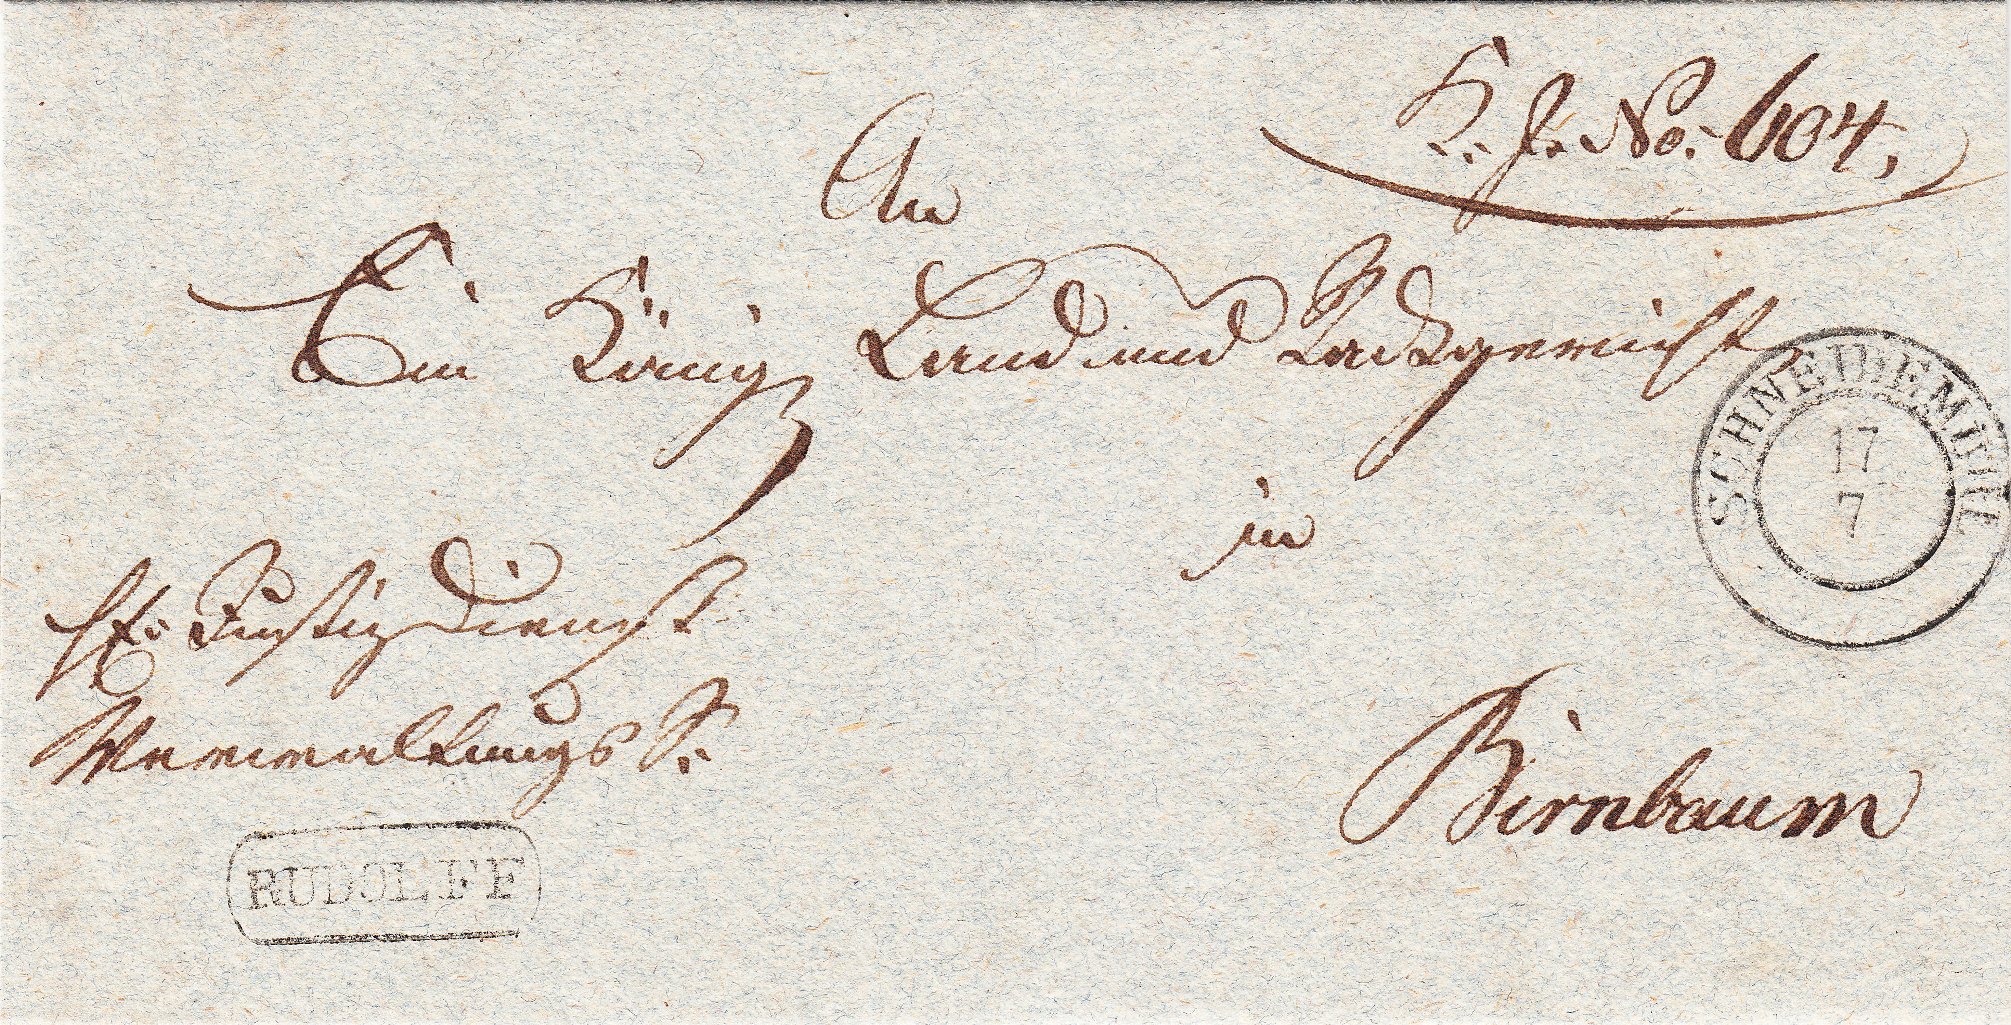 K. J. No: 604,
An
Ein Königl Land und Stadtgericht
in
Birnbaum
Justiz Dienst
Verwaltungs S.
SCHNEIDEMÜHL
17
7
RUDOLFF